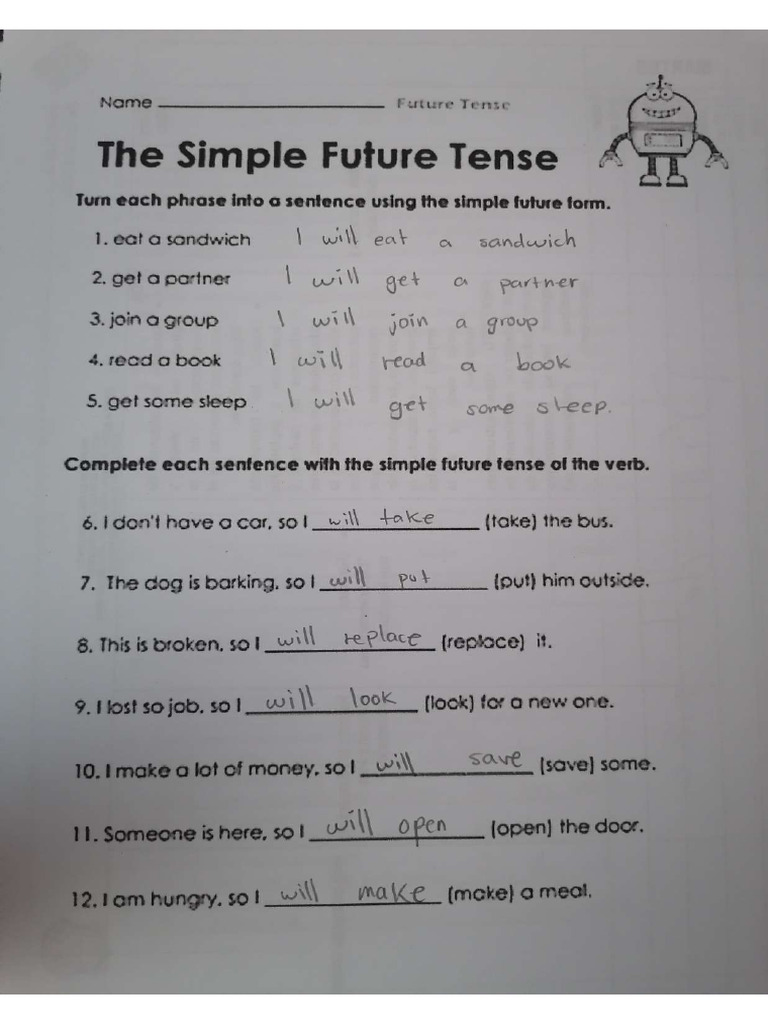 Name Future Tense
The Simple Future Tense
Turn each phrase into a sentence using the simple future form.
1. eat a sandwich I will eat a sandwich
2. get a partner I will get a partner
3. join a group I will join a group
4. read a book I will read a book
5. get some sleep I will get some sleep.
Complete each sentence with the simple future tense of the verb.
6. I don't have a car, so I will take (take) the bus.
7. The dog is barking, so I will put (put) him outside.
8. This is broken, so I will replace (replace) it.
9. I lost so job, so I will look (look) for a new one.
10. I make a lot of money, so I will save (save) some.
11. Someone is here, so I will open (open) the door.
12. I am hungry, so I will make (make) a meal.